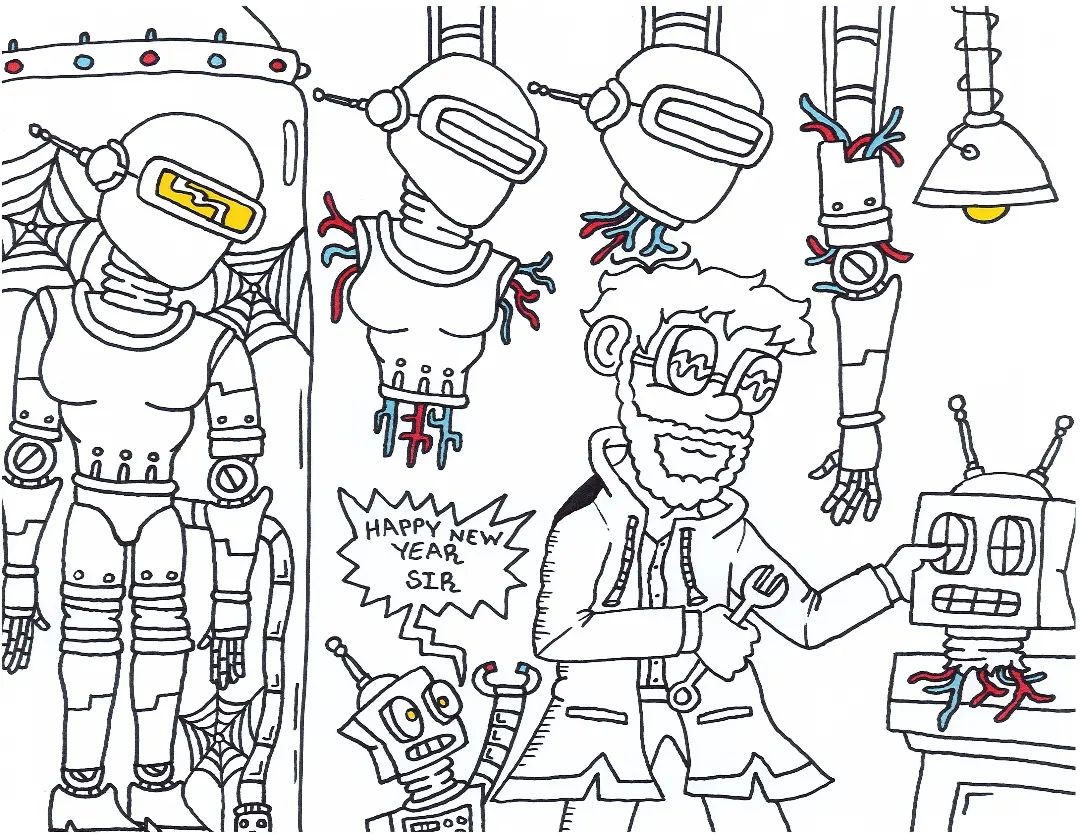 HAPPY NEW
YEAR
SIR